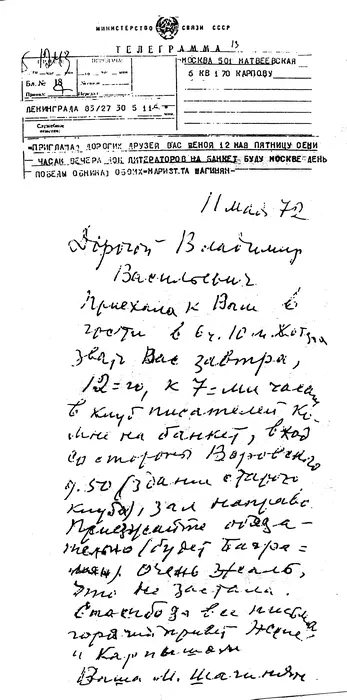 МИНИСТЕРСТВО СВЯЗИ СССР
ТЕЛЕГРАММА 13
МОСКВА 501 МАТВЕЕВСКАЯ
6 КВ 170 КАРПОВУ
Бл. № 18
ЛЕНИНГРАДА 83/27 30 5
Служебные
отметки:
=ПРИГЛАШАЮ ДОРОГИХ ДРУЗЕЙ ВАС ЖЕНОЙ 12 МАЯ ПЯТНИЦУ СЕМИ
ЧАСАМ ВЕЧЕРА ДОМ ЛИТЕРАТОРОВ НА БАНКЕТ БУДУ МОСКВЕ ДЕНЬ
ПОБЕДЫ ОБНИМАЮ ОБОИХ=МАРИЭТТА ШАГИНЯН-
11 мая 72
Дорогой Владимир
Васильевич
Приехала к Вам в
гости в 6 ч. 10 м. Хотела
звать Вас завтра,
12=го, к 7=ми часам
в клуб писателей ко
мне на банкет, вход
со стороны Воровского
д. 50 (здание старого
клуба), зал направо.
Приезжайте обяза-
тельно (будет Багра=
мян). Очень жаль,
что не застала.
Спасибо за все письма
горячий привет жене
и Карпышам
Ваша М. Шагинян